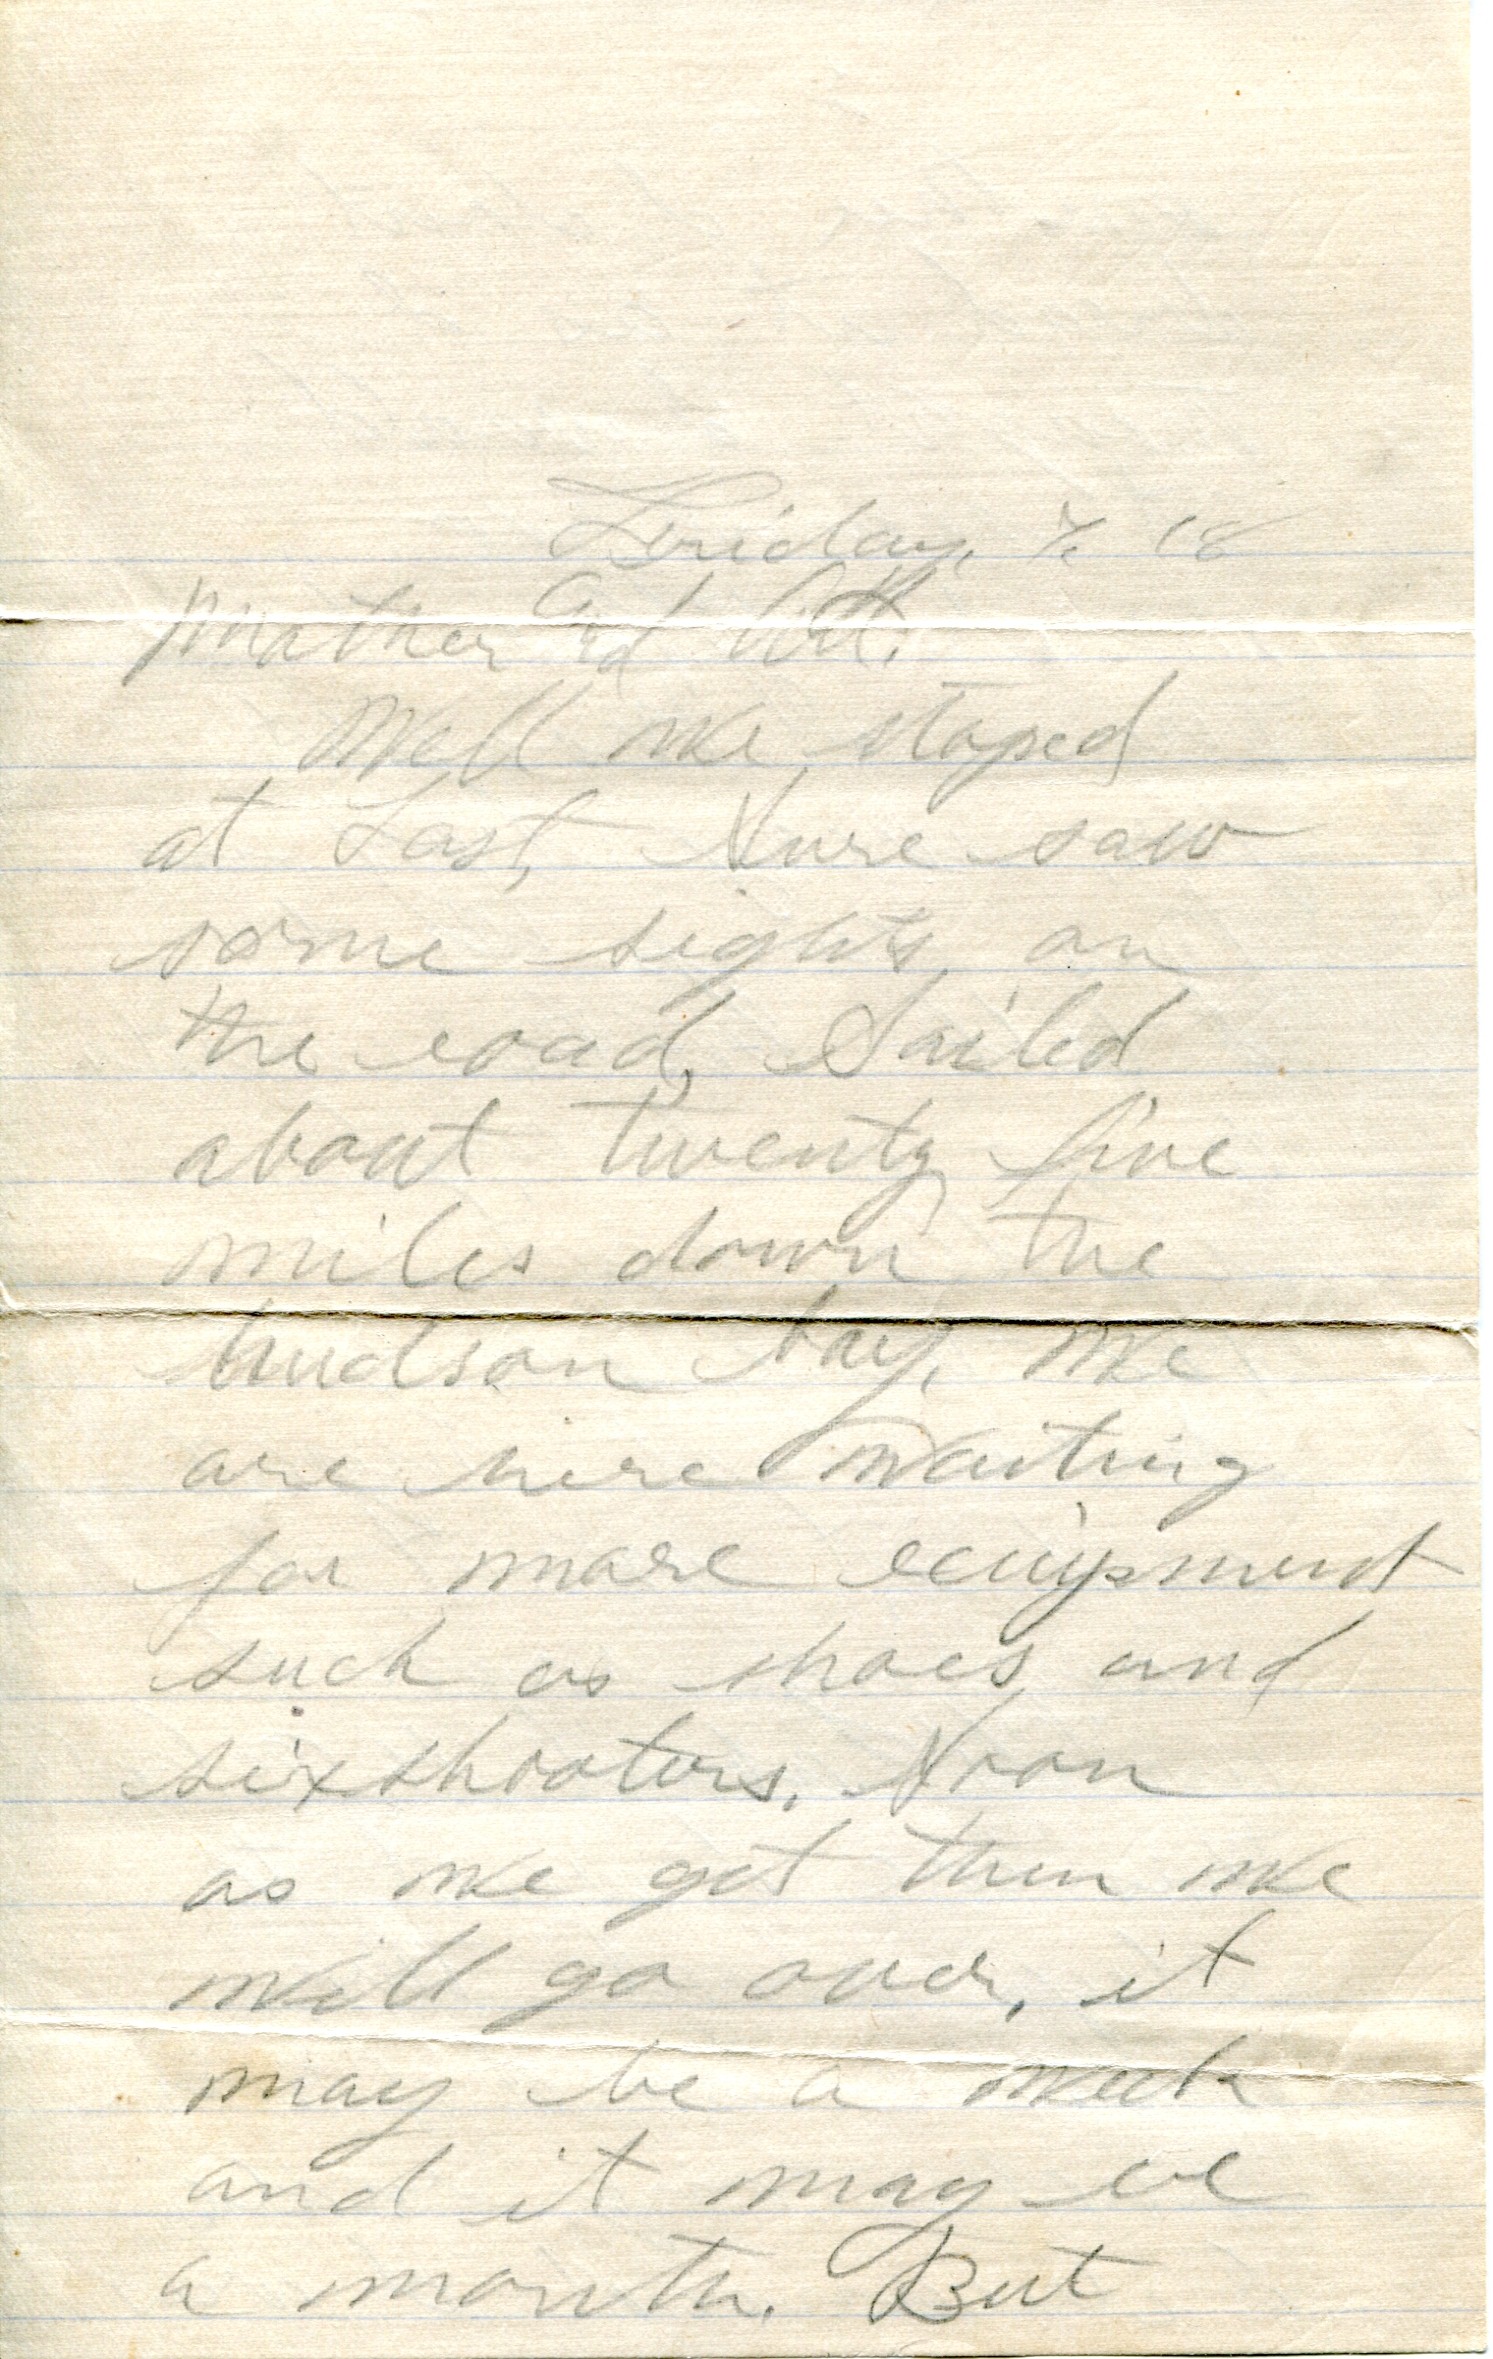 Friday, 18
Mother and
Well we stoped
at Last, Sure saw
some sights on
the road, Sailed
about twenty five
miles down the
hudson bay, we
are here waiting
for more ecuipment
such as shoes and
sixshooters. Soon
as we get them we
will go over, it
may be a week
and it may be
a month. But